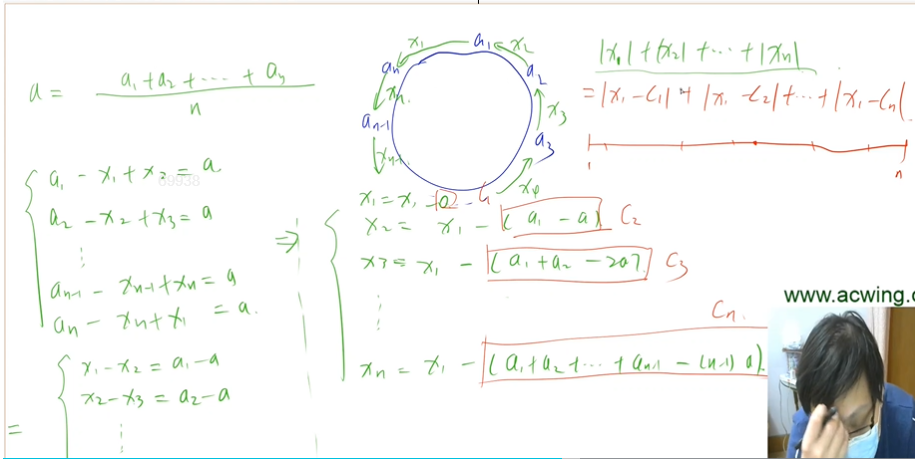 a = (a₁ + a₂ + ⋯ + aₙ) / n
a₁ - x₁ + x₂ = a
a₂ - x₂ + x₃ = a
⋮
aₙ₋₁ - xₙ₋₁ + xₙ = a
aₙ - xₙ + x₁ = a.
=
x₁ - x₂ = a₁ - a
x₂ - x₃ = a₂ - a
⋮
x₁ a₁ x₂
aₙ a₂
xₙ x₃
aₙ₋₁ a₃
xₙ₋₁ x₄
⇒
x₁ = x₁ - 0 C₁
x₂ = x₁ - (a₁ - a) C₂
x₃ = x₁ - (a₁ + a₂ - 2a) C₃
⋮
Cₙ.
xₙ = x₁ - (a₁ + a₂ + ⋯ + aₙ₋₁ - (n-1) a)
|x₁| + |x₂| + ⋯ + |xₙ|
= |x₁ - C₁| + |x₁ - C₂| + ⋯ + |x₁ - Cₙ|.
1 n
www.acwing.c